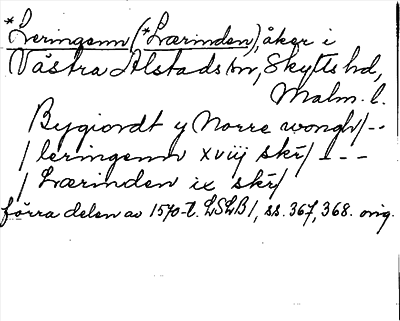 *Leringenn (*Lærinden), åker i
Västra Alstads sn, Skytts hd,
Malm. l.
Bygiordt y Norre wongh/--
/ leringenn xviij skr/ ---
/ Lærinden ix skr/
förra delen av 1570-t. LSLB1, ss. 367, 368. orig.